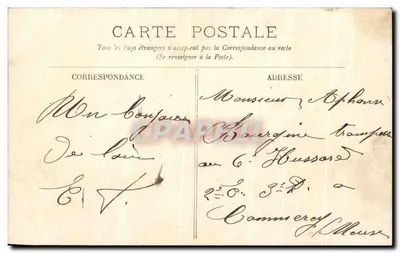 CARTE POSTALE
Tous les Pays étrangers n'acceptent pas la Correspondance au recto
(Se renseigner à la Poste).
CORRESPONDANCE
ADRESSE
Un bonjour
de loin
E
Monsieur Alphonse
au 6e Hussards
2e E. 3e P. a
Commercy
Meuse